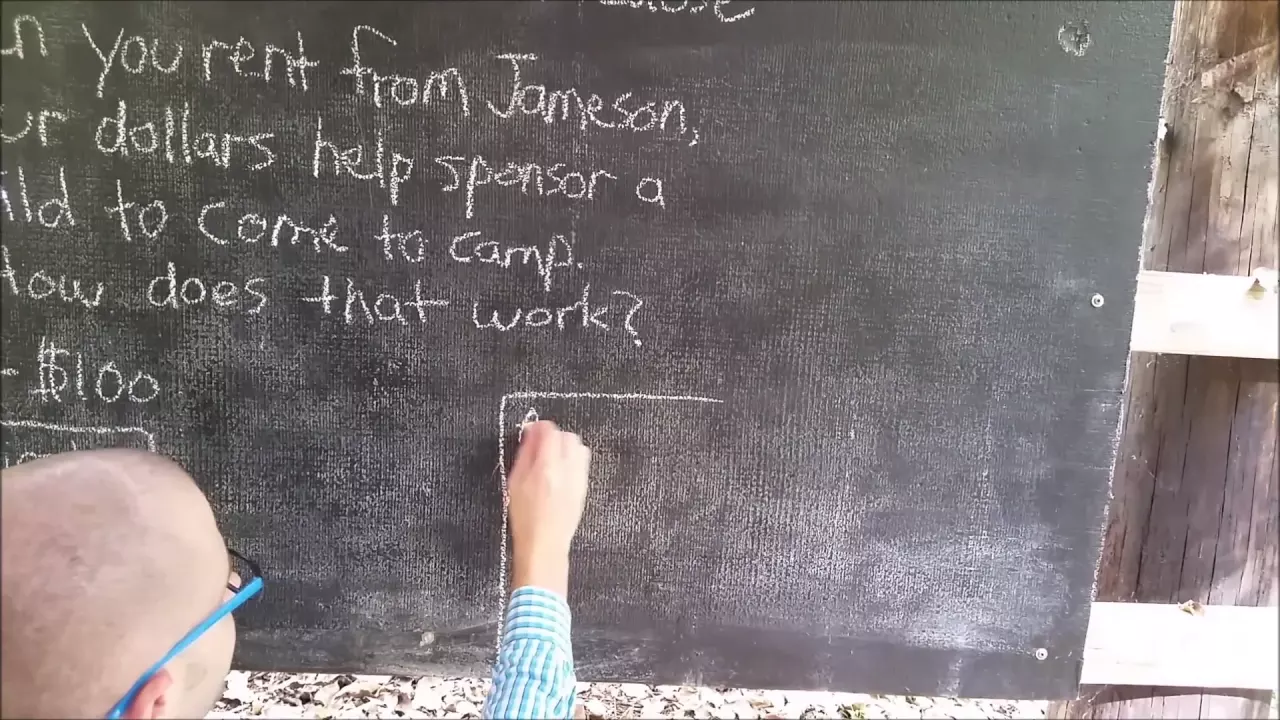 you rent from Jameson,
dollars help sponsor a
to come to camp.
How does that work?
- $100